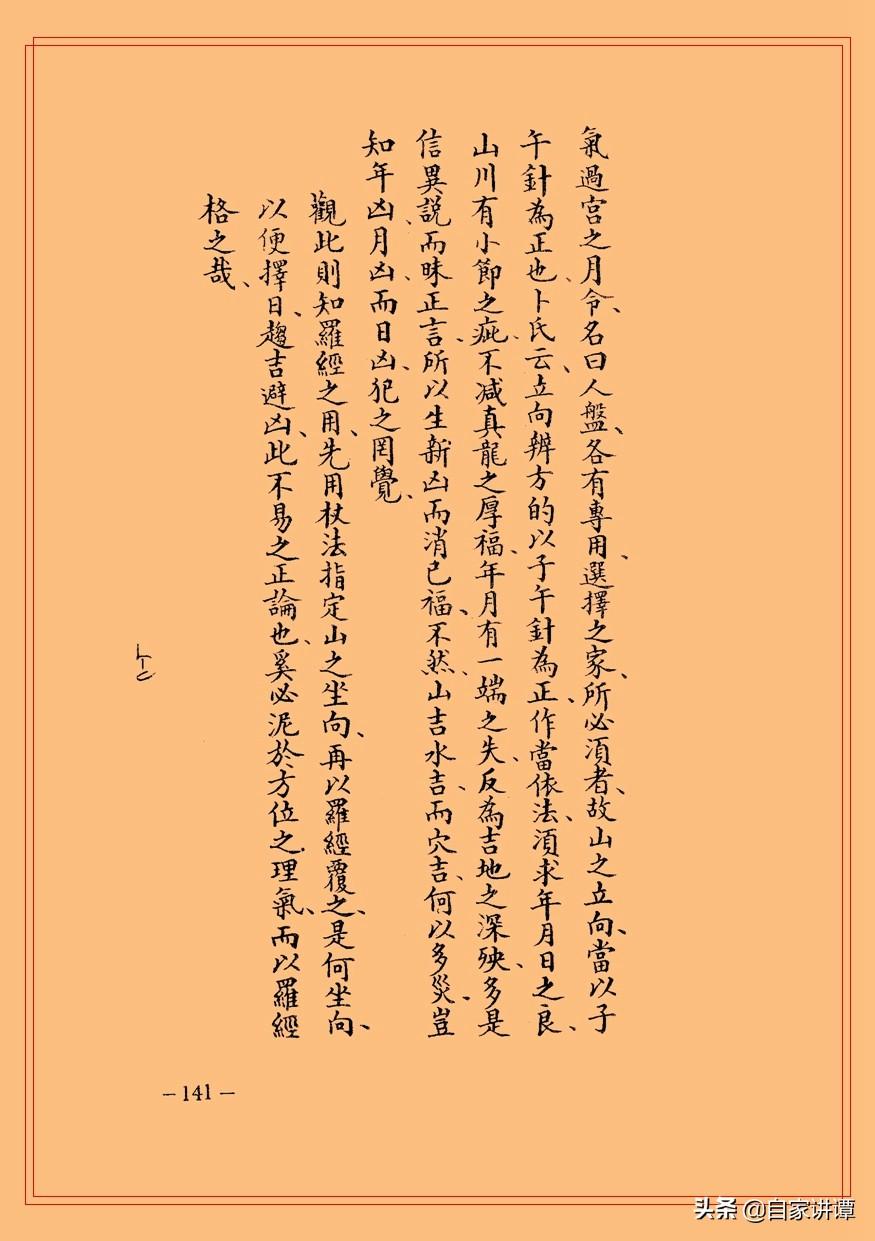 氣過宮之月令、名曰人盤、各有專用、選擇之家、所必須者、故山之立向、當以子
午針為正也、卜氏云、立向辨方的以子午針為正、作當依法、須求年月日之良、
山川有小節之疵、不減真龍之厚福、年月有一端之失、反為吉地之深殃、多是
信異說而昧正言、所以生新凶而消已福、不然、山吉水吉、而穴吉、何以多災、豈
知年凶、月凶、而日凶、犯之罔覺、
觀此則知羅經之用、先用杖法指定山之坐向、再以羅經覆之、是何坐向、
以便擇日、趨吉避凶、此不易之正論也、奚必泥於方位之理氣、而以羅經
格之哉、
- 141 -
头条 @自家讲谭